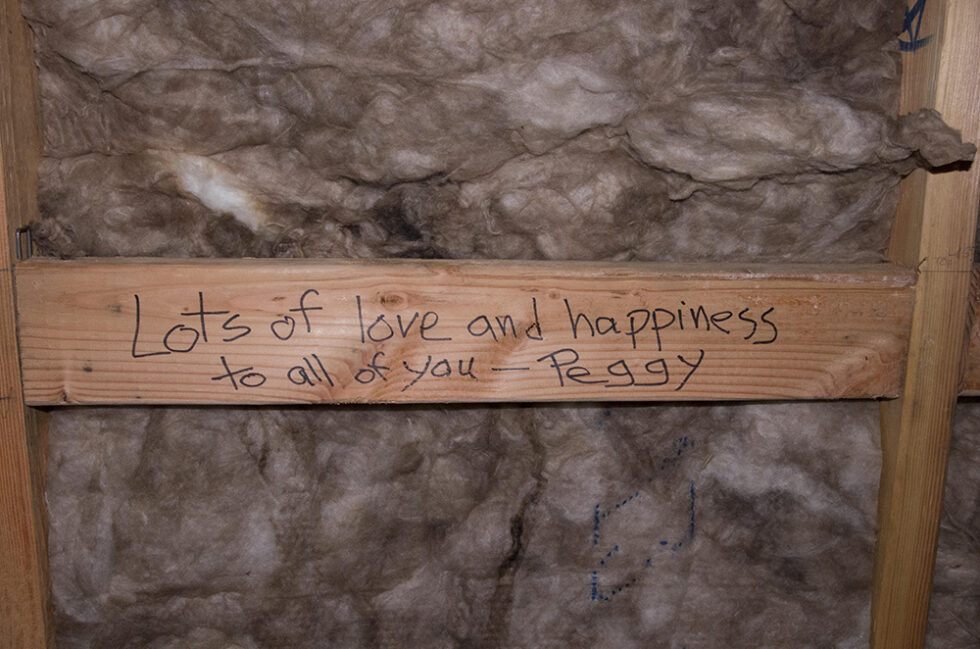 Lots of love and happiness
to all of you — Peggy